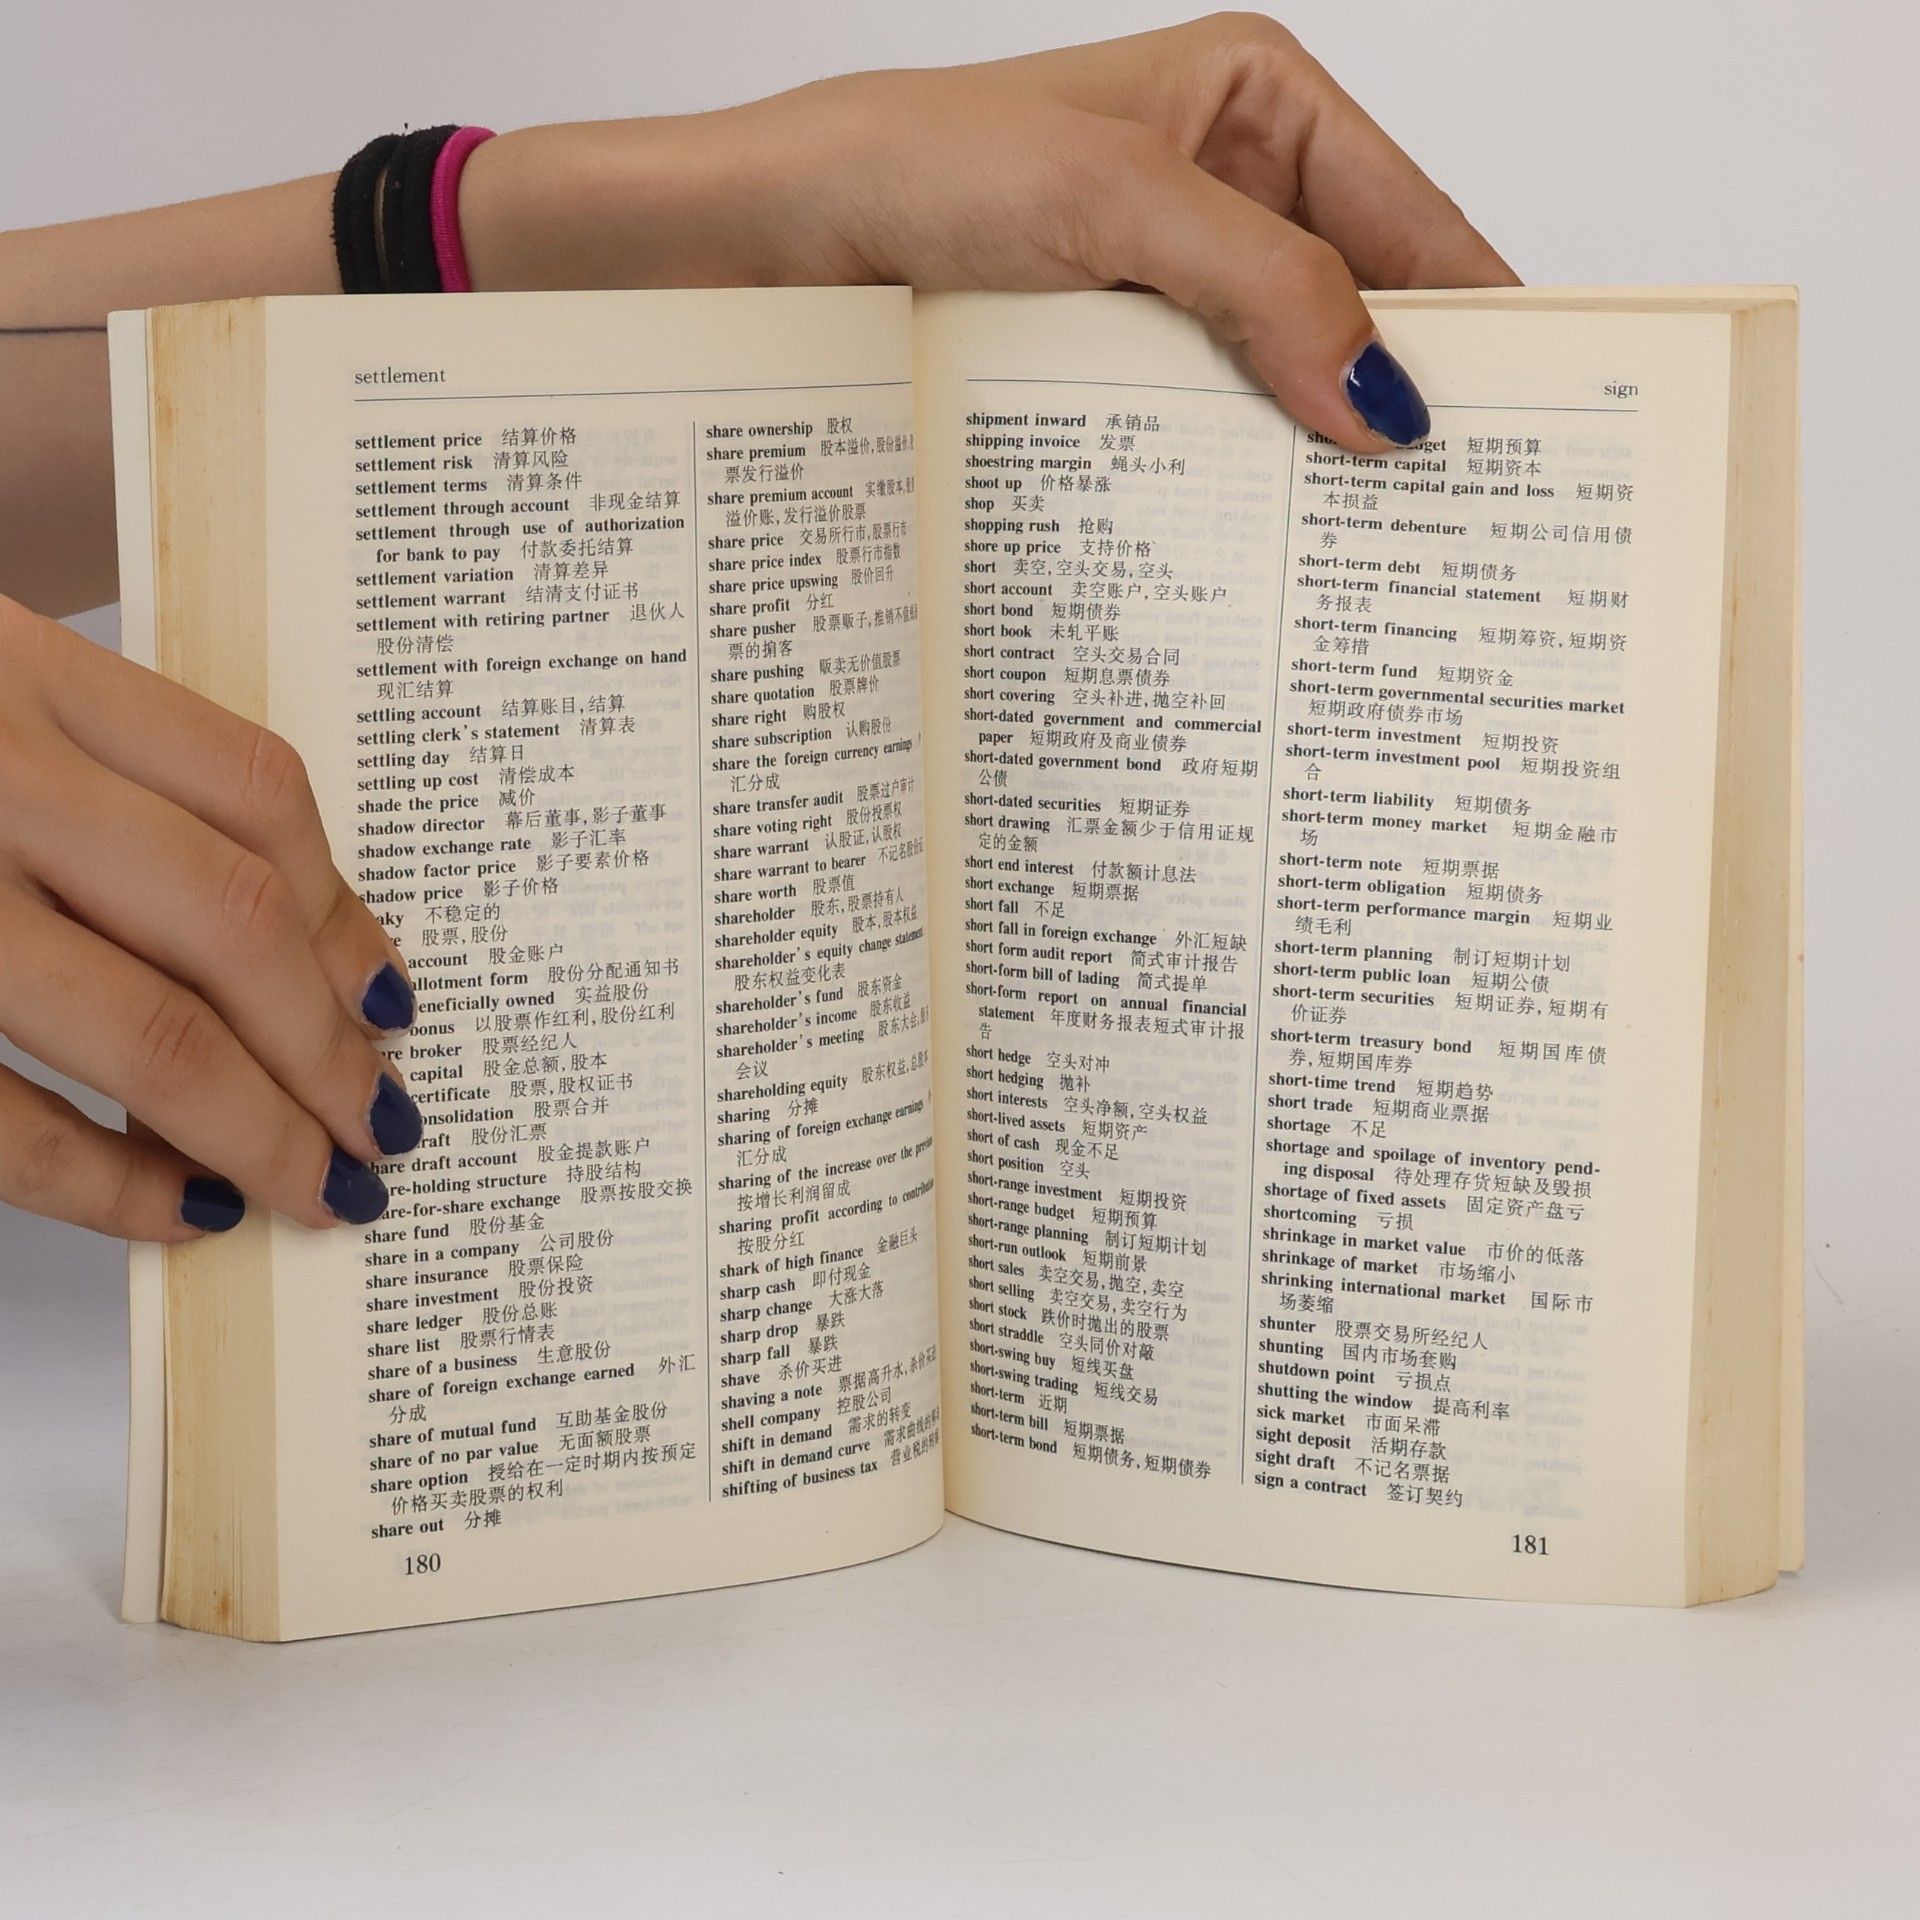 settlement
settlement price 结算价格
settlement risk 清算风险
settlement terms 清算条件
settlement through account 非现金结算
settlement through use of authorization
for bank to pay 付款委托结算
settlement variation 清算差异
settlement warrant 结清支付证书
settlement with retiring partner 退伙人
股份清偿
settlement with foreign exchange on hand
现汇结算
settling account 结算账目,结算
settling clerk's statement 清算表
settling day 结算日
settling up cost 清偿成本
shade the price 减价
shadow director 幕后董事,影子董事
shadow exchange rate 影子汇率
shadow factor price 影子要素价格
shadow price 影子价格
不稳定的
股票,股份
account 股金账户
allotment form 股份分配通知书
beneficially owned 实益股份
bonus 以股票作红利,股份红利
broker 股票经纪人
capital 股金总额,股本
certificate 股票,股权证书
consolidation 股票合并
股份汇票
share draft account 股金提款账户
share-holding structure 持股结构
share-for-share exchange 股票按股交换
share fund 股份基金
share in a company 公司股份
share insurance 股票保险
share investment 股份投资
share ledger 股份总账
share list 股票行情表
share of a business 生意股份
share of foreign exchange earned 外汇
分成
share of mutual fund 互助基金股份
share of no par value 无面额股票
share option 授给在一定时期内按预定
价格买卖股票的权利
share out 分摊
share ownership 股权
share premium 股本溢价,股份溢价,
票发行溢价
share premium account 实缴股本,
溢价账,发行溢价股票
share price 交易所行市,股票行市
share price index 股票行市指数
share price upswing 股价回升
share profit 分红
share pusher 股票贩子,推销不值
票的掮客
share pushing 贩卖无价值股票
share quotation 股票牌价
share right 购股权
share subscription 认购股份
share the foreign currency earnings
汇分成
share transfer audit 股票过户审计
share voting right 股份投票权
share warrant 认股证,认股权
share warrant to bearer 不记名股份证
share worth 股票值
shareholder 股东,股票持有人
shareholder equity 股本,股本权益
shareholder's equity change statement
股东权益变化表
shareholder's fund 股东资金
shareholder's income 股东收益
shareholder's meeting 股东大会,
会议
shareholding equity 股东权益,总股本
sharing 分摊
sharing of foreign exchange earnings
汇分成
sharing of the increase over the previous
按增长利润留成
sharing profit according to
按股分红
shark of high finance 金融巨头
sharp cash 即付现金
sharp change 大涨大落
sharp drop 暴跌
sharp fall 暴跌
shave 杀价买进
shaving a note 票据高升水,杀价买进
shell company 控股公司
shift in demand 需求的转变
shift in demand curve 需求曲线的
shifting of business tax 营业税的转嫁
180
sign
shipment inward 承销品
shipping invoice 发票
shoestring margin 蝇头小利
shoot up 价格暴涨
shop 买卖
shopping rush 抢购
shore up price 支持价格
short 卖空,空头交易,空头
short account 卖空账户,空头账户
short bond 短期债券
short book 未轧平账
short contract 空头交易合同
short coupon 短期息票债券
short covering 空头补进,抛空补回
short-dated government and commercial
paper 短期政府及商业债券
short-dated government bond 政府短期
公债
short-dated securities 短期证券
short drawing 汇票金额少于信用证规
定的金额
short end interest 付款额计息法
short exchange 短期票据
short fall 不足
short fall in foreign exchange 外汇短缺
short form audit report 简式审计报告
short-form bill of lading 简式提单
short-form report on annual financial
statement 年度财务报表短式审计报
告
short hedge 空头对冲
short hedging 抛补
short interests 空头净额,空头权益
short-lived assets 短期资产
short of cash 现金不足
short position 空头
short-range investment 短期投资
short-range budget 短期预算
short-range planning 制订短期计划
short-run outlook 短期前景
short sales 卖空交易,抛空,卖空
short selling 卖空交易,卖空行为
short stock 跌价时抛出的股票
short straddle 空头同价对敲
short-swing buy 短线买盘
short-swing trading 短线交易
short-term 近期
short-term bill 短期票据
short-term bond 短期债务,短期债券
短期预算
short-term capital 短期资本
short-term capital gain and loss 短期资
本损益
short-term debenture 短期公司信用债
券
short-term debt 短期债务
short-term financial statement 短期财
务报表
short-term financing 短期筹资,短期资
金筹措
short-term fund 短期资金
short-term governmental securities market
短期政府债券市场
short-term investment 短期投资
short-term investment pool 短期投资组
合
short-term liability 短期债务
short-term money market 短期金融市
场
short-term note 短期票据
short-term obligation 短期债务
short-term performance margin 短期业
绩毛利
short-term planning 制订短期计划
short-term public loan 短期公债
short-term securities 短期证券,短期有
价证券
short-term treasury bond 短期国库债
券,短期国库券
short-time trend 短期趋势
short trade 短期商业票据
shortage 不足
shortage and spoilage of inventory pend-
ing disposal 待处理存货短缺及毁损
shortage of fixed assets 固定资产盘亏
shortcoming 亏损
shrinkage in market value 市价的低落
shrinkage of market 市场缩小
shrinking international market 国际市
场萎缩
shunter 股票交易所经纪人
shunting 国内市场套购
shutdown point 亏损点
shutting the window 提高利率
sick market 市面呆滞
sight deposit 活期存款
sight draft 不记名票据
sign a contract 签订契约
181